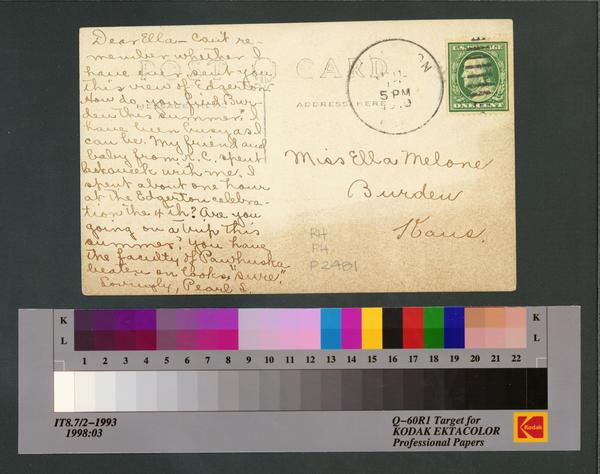 Dear Ella— Can't re-
member whether I
have ever sent you
this view of Edgerton.
How do you find Bur-
den this summer? I
have been busy as I
can be. My friend and
baby from K.C. spent
last week with me. I
spent about one hour
at the Edgerton celebra-
tion the 4th? Are you
going on a trip this
summer? You have
the faculty of Pawhuska
beaten on looks, "sure".
Lovingly, Pearl S.
POST CARD
ADDRESS HERE
5 PM
U.S. POSTAGE
ONE CENT
Miss Ella Melone
Burden
Kans.
RH
PH
P2481
K K
L L
1 2 3 4 5 6 7 8 9 10 11 12 13 14 15 16 17 18 19 20 21 22
IT8.7/2–1993
1998:03
Q–60R1 Target for
KODAK EKTACOLOR
Professional Papers
Kodak